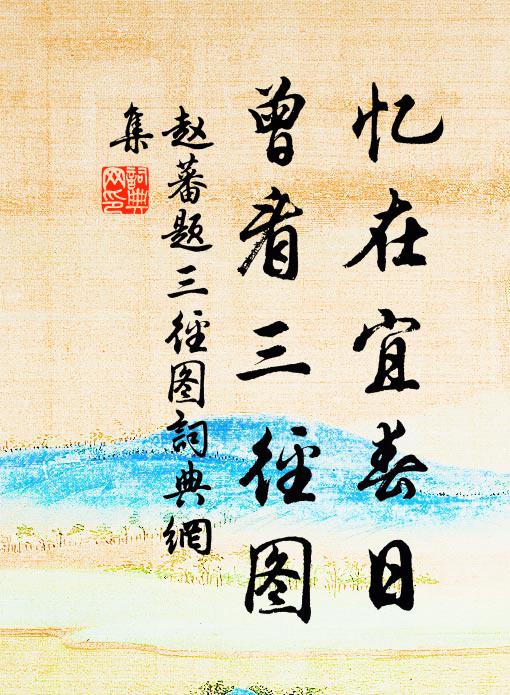 忆在宜春日
曾看三径图
赵蕃题三径图词典網
集
詞典網印